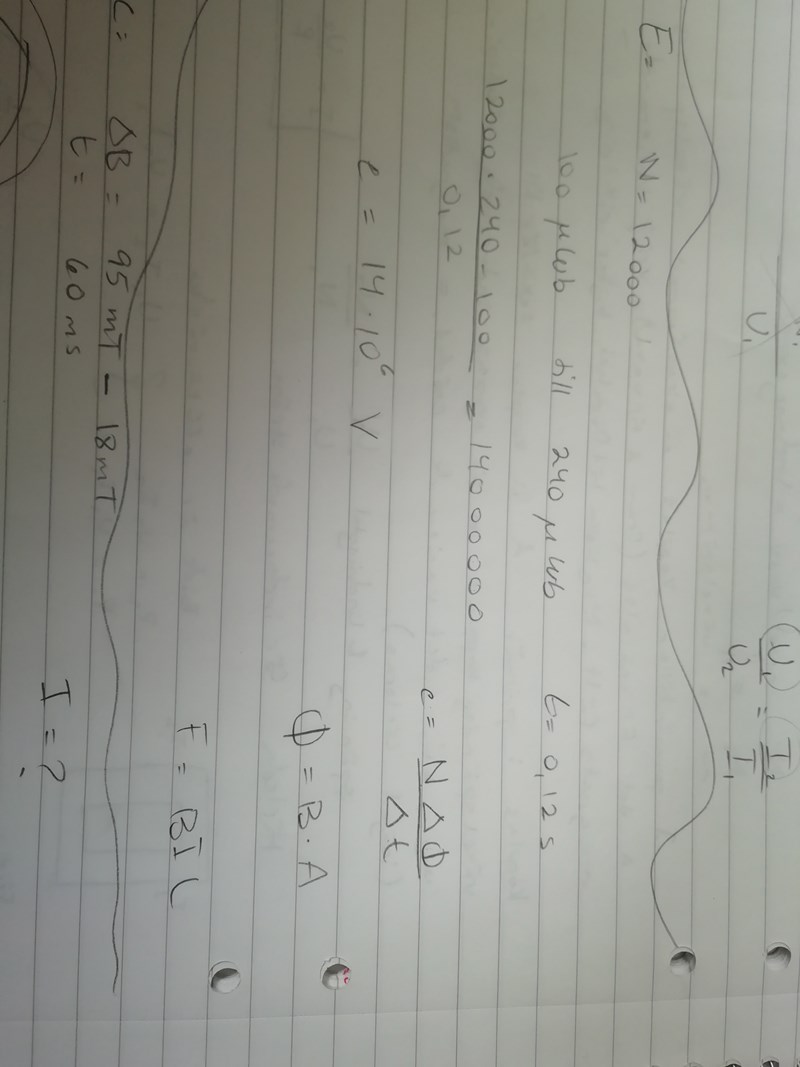 U₁
U₁/U₂ = I₂/I₁
E= N = 12000
100 μWb till 240 μWb t= 0,12 s
12000 · 240 - 100 / 0,12 = 14000000
e = NΔΦ/Δt
e = 14·10⁶ V
Φ = B · A
F = BIL
C= ΔB = 95 mT - 18mT
t = 60 ms
I = ?